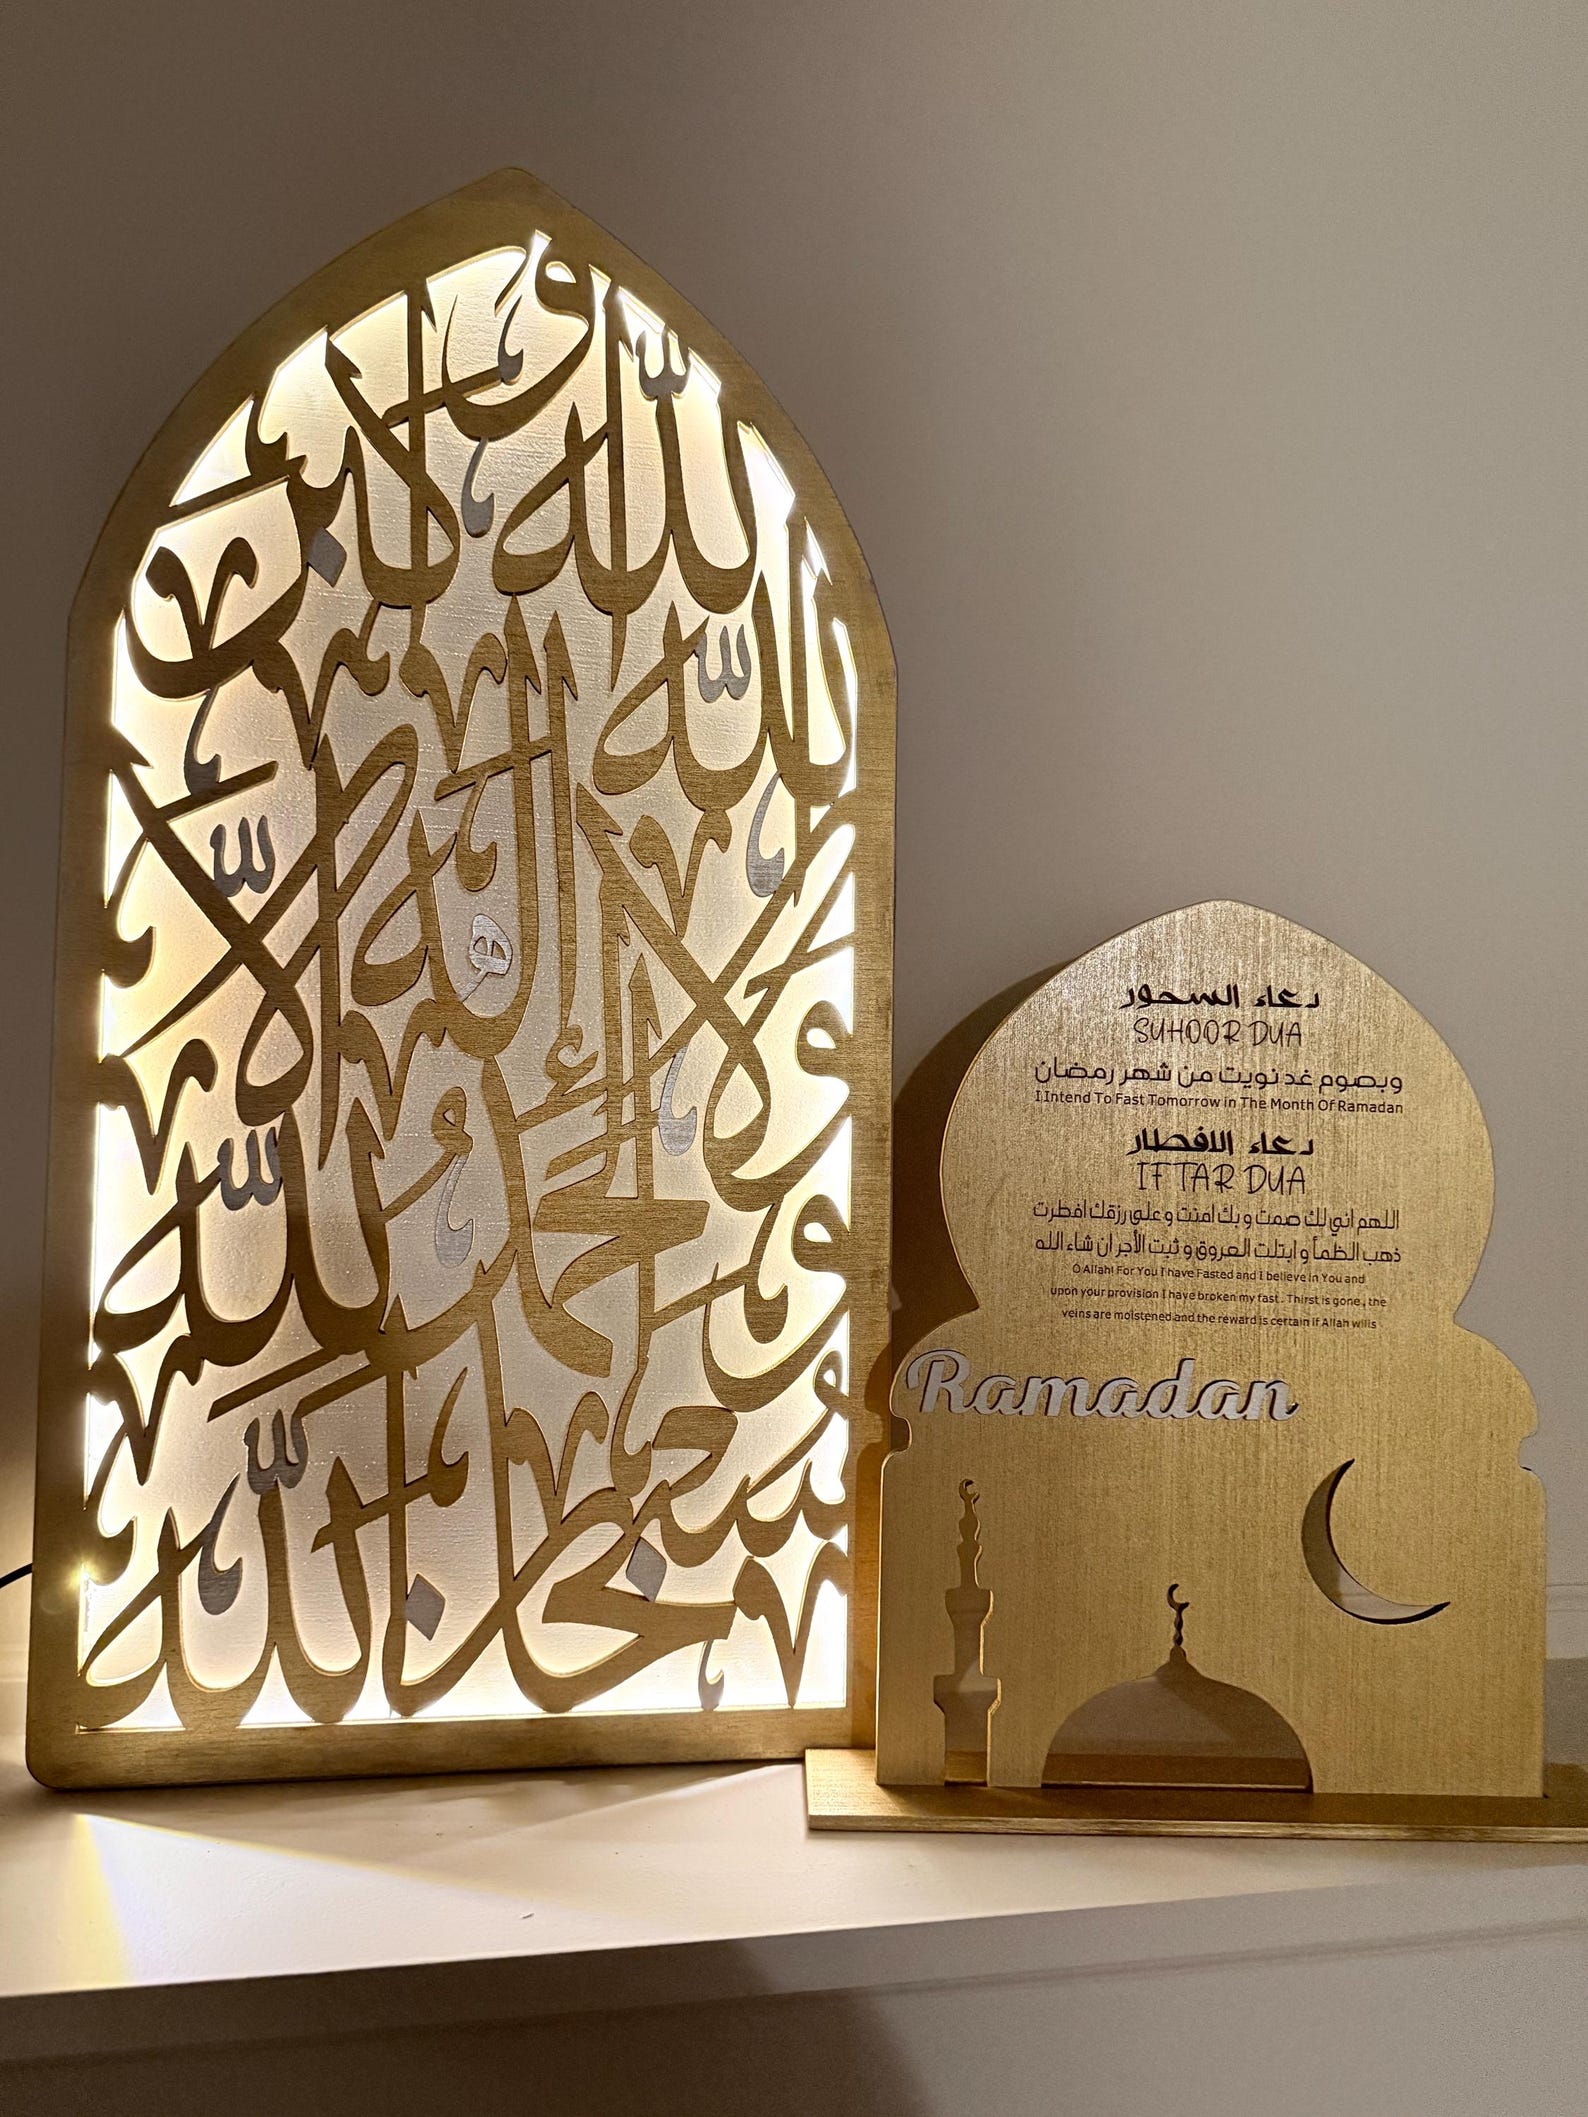 سبحان الله
والحمد لله
ولا إله إلا الله
والله أكبر
دعاء السحور
SUHOOR DUA
وبصوم غد نويت من شهر رمضان
I Intend To Fast Tomorrow in The Month Of Ramadan
دعاء الافطار
IFTAR DUA
اللهم اني لك صمت و بك امنت و على رزقك افطرت
ذهب الظمأ و ابتلت العروق و ثبت الأجر ان شاء الله
O Allah! For You I have Fasted and I believe in You and
upon your provision I have broken my fast. Thirst is gone, the
veins are moistened and the reward is certain if Allah wills
Ramadan